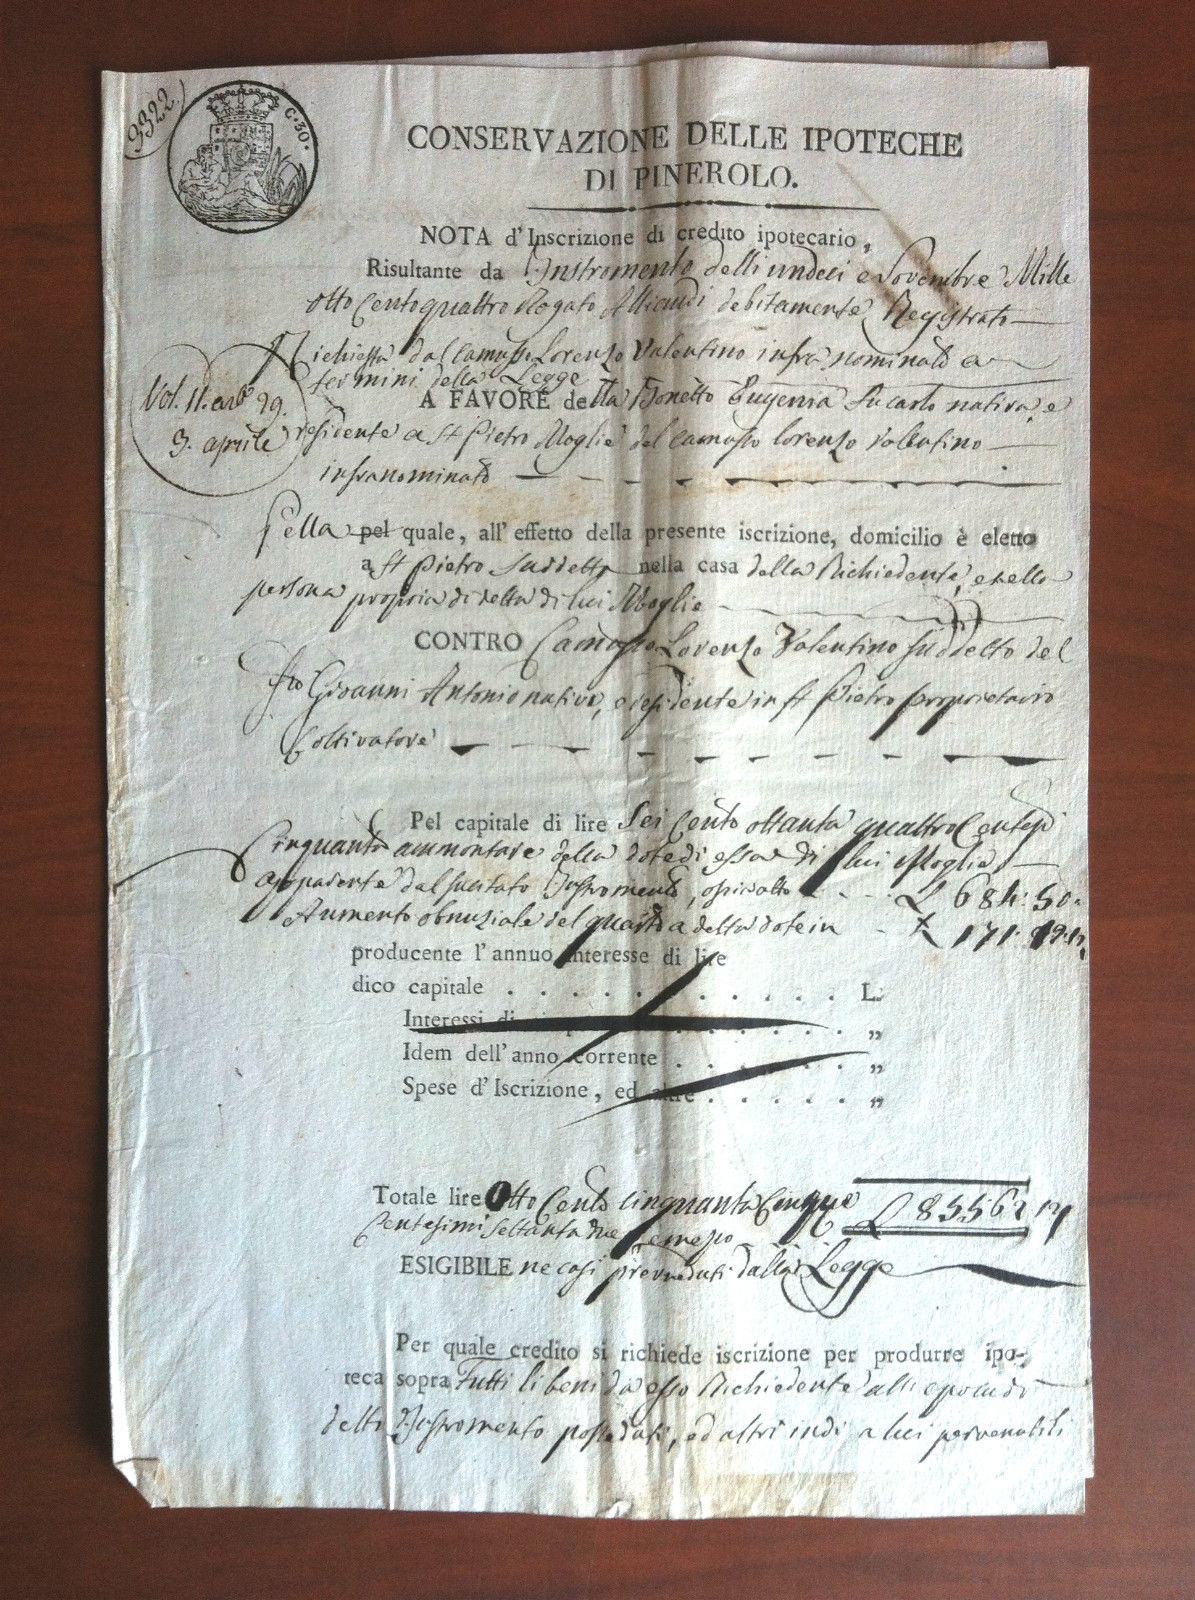 3322
C. 30.
CONSERVAZIONE DELLE IPOTECHE
DI PINEROLO.
NOTA d'Inscrizione di credito ipotecario,
Risultante da Instromento delli undeci Novembre Mille
otto Cento quattro Rogato debitamente Registrato
Richiesta dal Camusso Lorenzo Valentino infra nominato a
termini della Legge
Vol. 11. art. 99.
3. aprile
A FAVORE della Bonetto Eugenia fu carlo nativa e
residente a St Pietro Moglie del Camusso Lorenzo Valentino
infranominato
Pella pel quale, all' effetto della presente iscrizione, domicilio è eletto
a St Pietro Suddetto nella casa della Richiedente, e nella
persona propria di detta di lui Moglie
CONTRO Camusso Lorenzo Valentino Suddetto del
fu Gioanni Antonio nativo, e residente in St Pietro proprietario
Coltivatore
Pel capitale di lire Sei Cento ottanta quattro Centesi
Cinquanta ammontare della dote di essa di lui Moglie
apparente dal sucitato Instromento, L 684: 50.
Aumento obnuziale del quarto a detta dote in L 171.
producente l'annuo interesse di lire
dico capitale . . . . . . . . . . . . L.
Interessi di . . . . . . . . „
Idem dell'anno corrente . . . . . . . „
Spese d'Iscrizione, ed altre . . . . . . „
Totale lire Otto Cento cinquanta Cinque L 855 62
Centesimi Settanta e mezzo
ESIGIBILE ne casi preveduti dalla Legge
Per quale credito si richiede iscrizione per produrre ipo-
teca sopra Tutti li beni da esso Richiedente
detto Instromento posseduti, ed altri indi a lui pervenibili